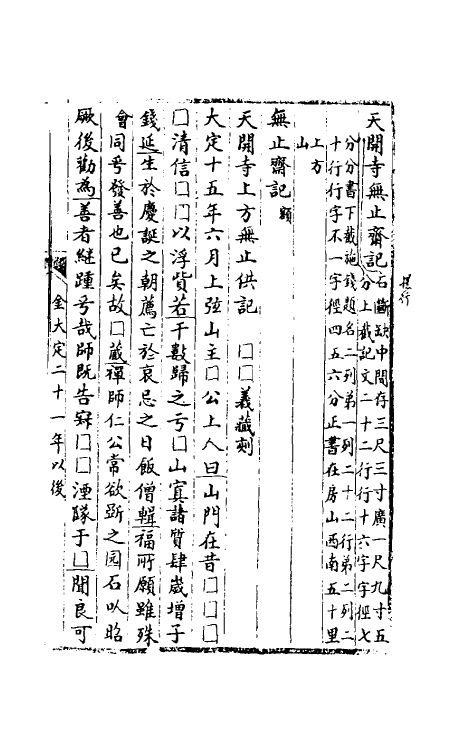 天開寺無止齋記石斷缺中間存三尺三寸廣一尺九寸五
分上截記文二十二行行十六字字徑七
分分書下截施錢題名二列第一列二十二行第二列二
十行行字不一字徑四五六分正書在房山西南五十里
上方
山
提行
無止齋記額
天開寺上方無止供記 □□義藏刻
大定十五年六月上弦山主□公上人曰山門在昔□□□
□清信□□以浮貲若干數歸之亏□山寘諸質肆歲增子
錢延生於慶誕之朝薦亡於哀忌之日飯僧輯福所願雖殊
會同号發善也已矣故□藏禪師仁公常欲斲之园石以昭
厥後勸為善者継踵号哉師旣告寂□□湮隊于□閒良可
金大定二十一年以後